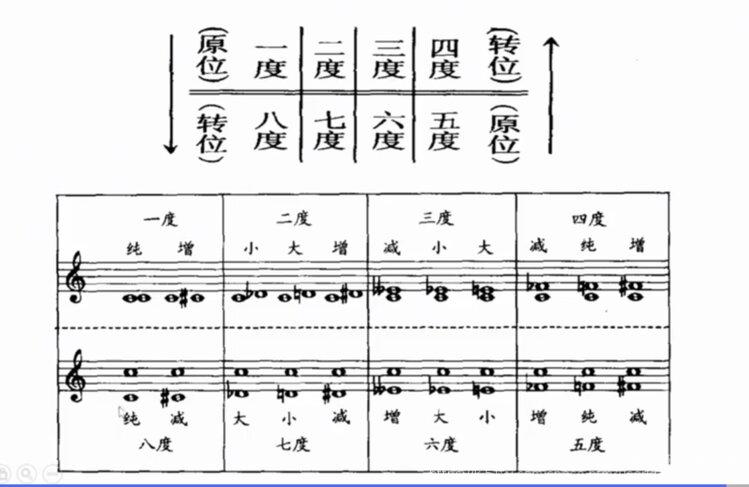 (原位) 一度 二度 三度 四度 (转位)
(转位) 八度 七度 六度 五度 (原位)
一度 二度 三度 四度
纯 增 小 大 增 减 小 大 减 纯 增
纯 减 大 小 减 增 大 小 增 纯 减
八度 七度 六度 五度